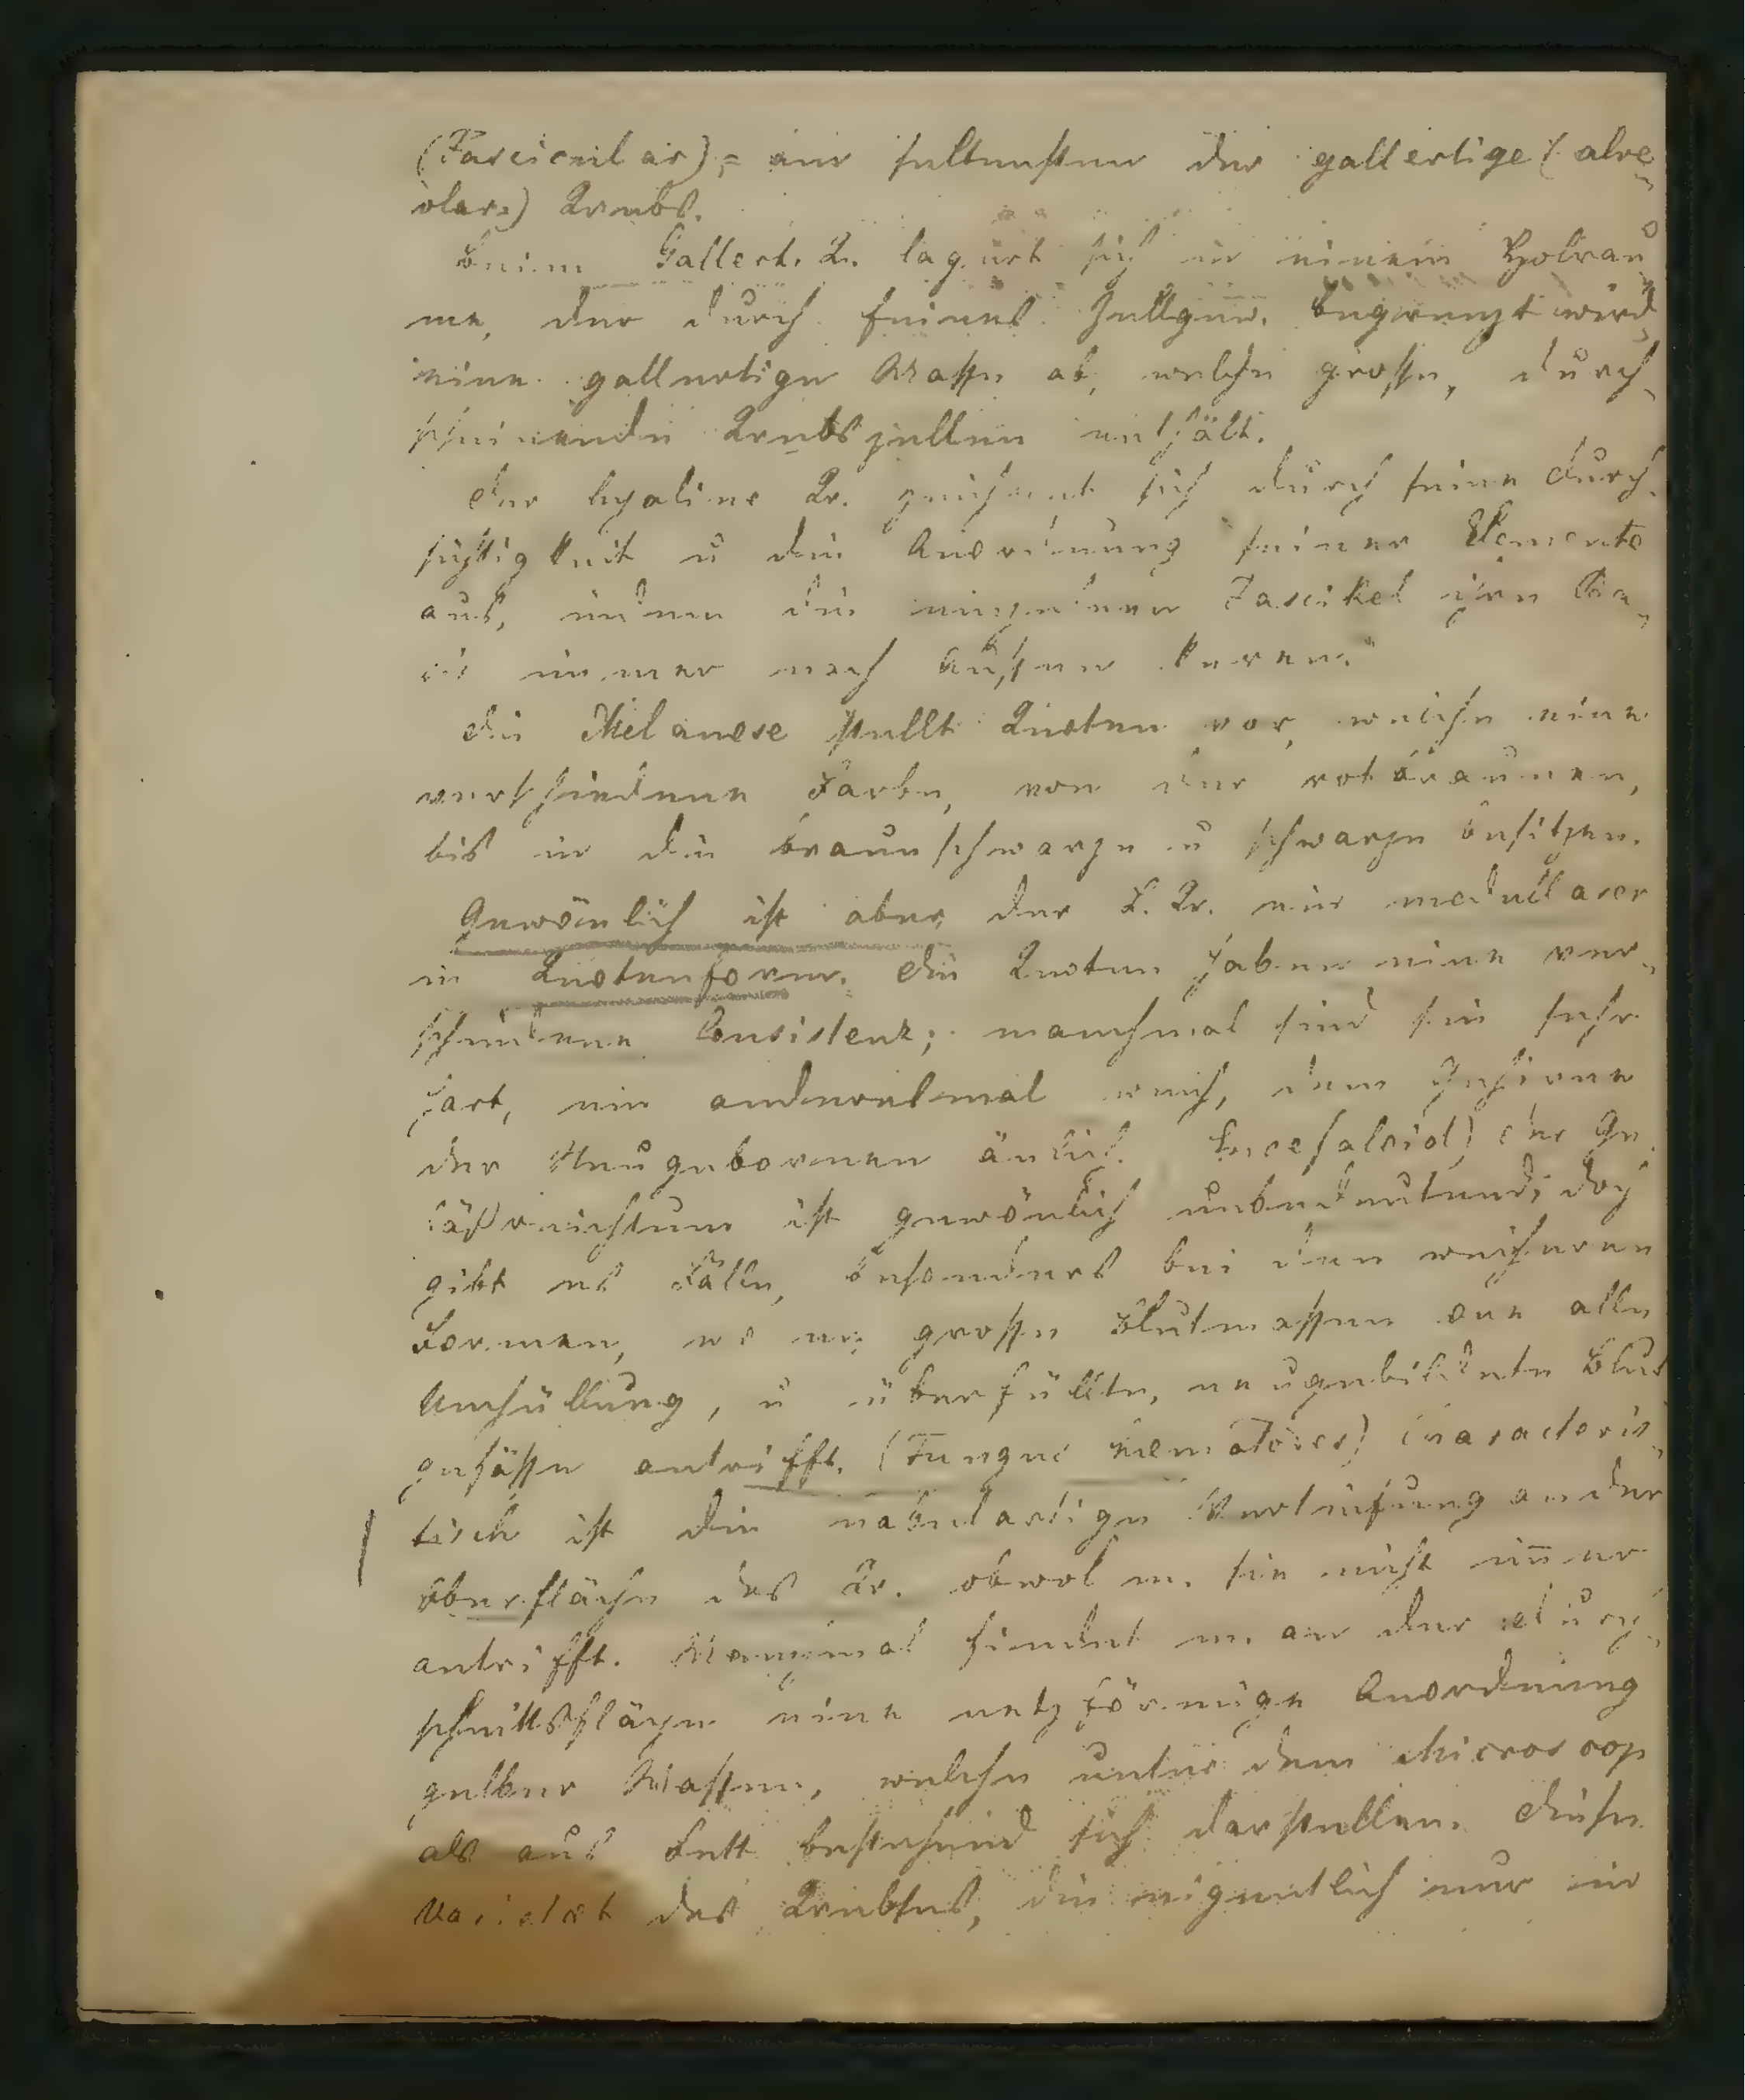 (Fascicular); am seltensten der gallertige (alve-
olare) Krebs.
Beim Gallert. Kr. lagert sich in einem Holrau-
me, der durch feines Zellgew. begrenzt wird
eine gallertige Masse ab, welche grosse, durch-
scheinende Krebszellen enthält.
Der hyaline Kr. zeichnet sich durch seine Durch-
sichtigkeit u die Anordnung seiner Elemente
aus, indem die einzelnen Fascikel ihre
immer nach aussen keren.
Die Melanose stellt Knoten vor, welche eine
verschiedene Farbe, von der rotbraunen,
bis in die braunschwarze u schwarze besitzen.
Gewönlich ist aber der L. Kr. ein medullarer
in Knotenform. Die Knoten haben eine ver-
schiedene Consistenz; manchmal sind sie sehr
hart, ein anderesmal weich, dem Gehirne
der Neugebornen änlich. Encefaloid) Der Ge-
fäßreichtum ist gewönlich unbedeutend; doch
gibt es Fälle, besonders bei den weicheren
Formen, wo m. grosse Blutmassen one alle
Umhüllung, u überfüllte, neugebildete Blut
gefässe antrifft. (Fungus hematodes) Characteris-
tisch ist die nabelartige Vertiefung an der
Oberfläche des Kr. obwol m. sie nicht immer
antrifft. Manchmal findet m. an der Durch-
schnittsfläche eine netzförmige Anordnung
gelber Massen, welche unter dem Microscop
als aus Fett bestehend sich darstellen. Diese
Varietæt des Krebses, die eigentlich nur in